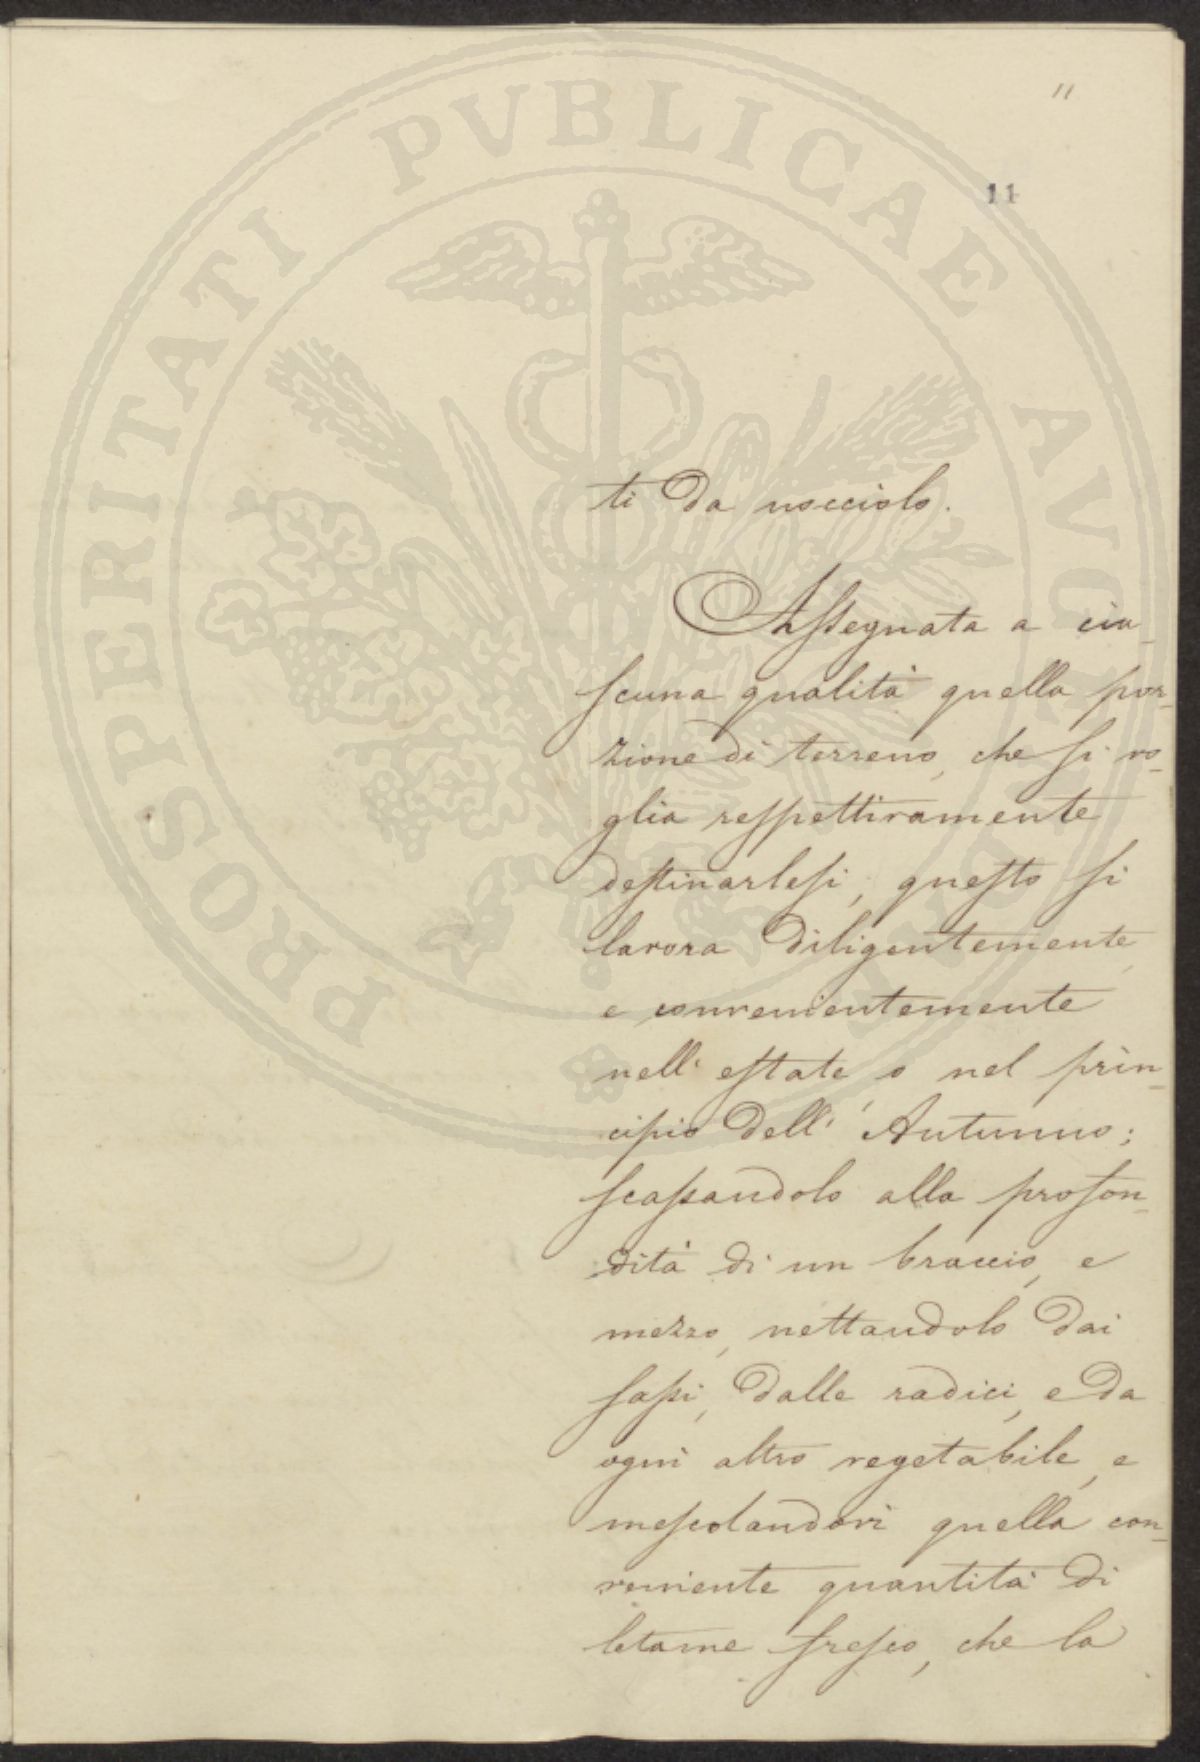 11
11
PROSPERITATI PVBLICAE AVGENDAE
ti da nocciolo.
Assegnata a cia-
scuna qualità quella por-
zione di terreno, che si vo-
glia respettivamente
destinarlesi, questo si
lavora diligentemente,
e convenientemente
nell' estate, o nel prin-
cipio dell' Autunno;
scassandolo alla profon-
dità di un braccio, e
mezzo, nettandolo dai
sassi, dalle radici, e da
ogni altro vegetabile, e
mescolandovi quella con-
veniente quantità di
letame fresco, che la